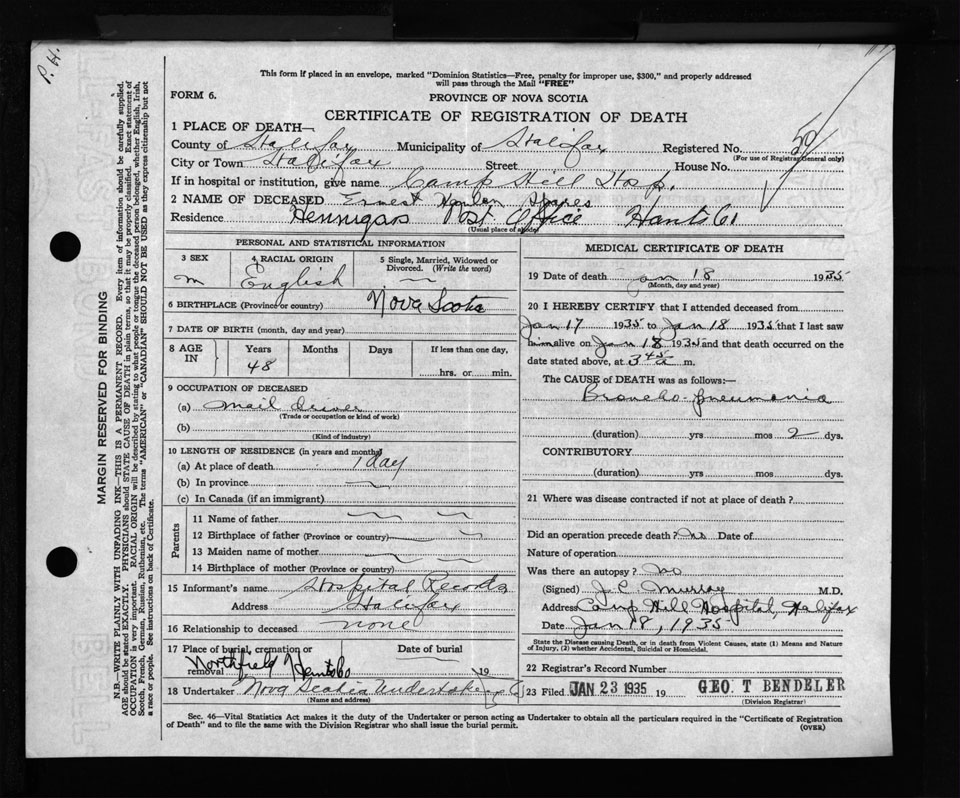 P. H.
This form if placed in an envelope, marked "Dominion Statistics—Free, penalty for improper use, $300," and properly addressed
will pass through the Mail "FREE"
FORM 6.
PROVINCE OF NOVA SCOTIA
CERTIFICATE OF REGISTRATION OF DEATH
1 PLACE OF DEATH—
County of Halifax Municipality of Halifax Registered No. 59
(For use of Registrar General only)
City or Town Halifax Street House No.
If in hospital or institution, give name Camp Hill Hosp.
2 NAME OF DECEASED Ernest
Residence Hennigars Post Office Hants Co
(Usual place of abode)
PERSONAL AND STATISTICAL INFORMATION
3 SEX
m
4 RACIAL ORIGIN
English
5 Single, Married, Widowed or
Divorced. (Write the word)
6 BIRTHPLACE (Province or country) Nova Scotia
7 DATE OF BIRTH (month, day and year)
8 AGE
IN
Years Months Days If less than one day,
48
hrs. or min.
9 OCCUPATION OF DECEASED
(a) Mail driver
(Trade or occupation or kind of work)
(b)
(Kind of industry)
10 LENGTH OF RESIDENCE (in years and months)
(a) At place of death 1 day
(b) In province
(c) In Canada (if an immigrant)
Parents
11 Name of father
12 Birthplace of father (Province or country)
13 Maiden name of mother
14 Birthplace of mother (Province or country)
15 Informant's name Hospital Records
Address Halifax
16 Relationship to deceased none
17 Place of burial, cremation or
removal Northfield Hants Co
Date of burial
19
18 Undertaker Nova Scotia Undertaking Co
(Name and address)
MEDICAL CERTIFICATE OF DEATH
19 Date of death Jan 18 1935
(Month, day and year)
20 I HEREBY CERTIFY that I attended deceased from
Jan 17 1935 to Jan 18 1935 that I last saw
him alive on Jan 18 1935 and that death occurred on the
date stated above, at 3 45 a m.
The CAUSE of DEATH was as follows:—
Broncho-pneumonia
(duration) yrs mos 2 dys.
CONTRIBUTORY
(duration) yrs. mos. dys.
21 Where was disease contracted if not at place of death?
Did an operation precede death? no Date of
Nature of operation
Was there an autopsy? no
(Signed) J. C. Murray M.D.
Address Camp Hill Hospital, Halifax
Date Jan 18, 1935
State the Disease causing Death, or in death from Violent Causes, state (1) Means and Nature
of Injury, (2) whether Accidental, Suicidal or Homicidal.
22 Registrar's Record Number
23 Filed JAN 23 1935 19 GEO. T BENDELER
(Division Registrar)
Sec. 46—Vital Statistics Act makes it the duty of the Undertaker or person acting as Undertaker to obtain all the particulars required in the "Certificate of Registration
of Death" and to file the same with the Division Registrar who shall issue the burial permit.
(OVER)
MARGIN RESERVED FOR BINDING
N.B.—WRITE PLAINLY WITH UNFADING INK—THIS IS A PERMANENT RECORD. Every item of information should be carefully supplied.
AGE should be stated EXACTLY. PHYSICIANS should STATE CAUSE OF DEATH in plain terms, so that it may be properly classified. Exact statement of
OCCUPATION is very important. RACIAL ORIGIN will be described by stating to what people or tongue the deceased person belonged, whether English, Irish,
Scotch, French, German, Russian, Ruthenian, etc. The terms "AMERICAN" or "CANADIAN" SHOULD NOT BE USED as they express citizenship but not
a race or people. See instructions on back of Certificate.